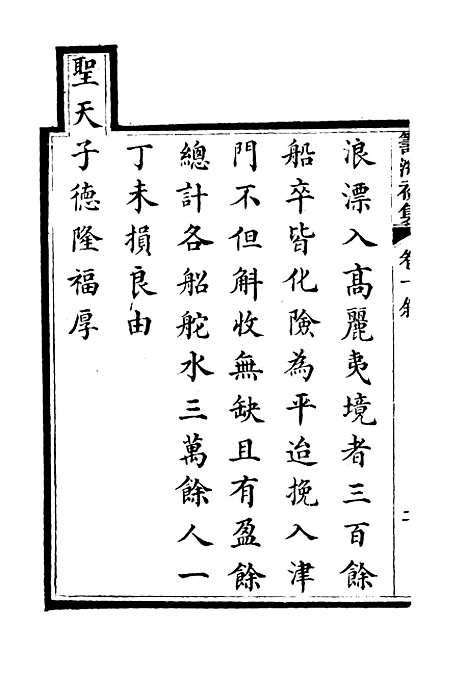 浪漂入高麗夷境者三百餘
船卒皆化險為平迨挽入津
門不但斛收無缺且有盈餘
總計各船舵水三萬餘人一
丁未損良由
聖天子德隆福厚
卷一敘
二